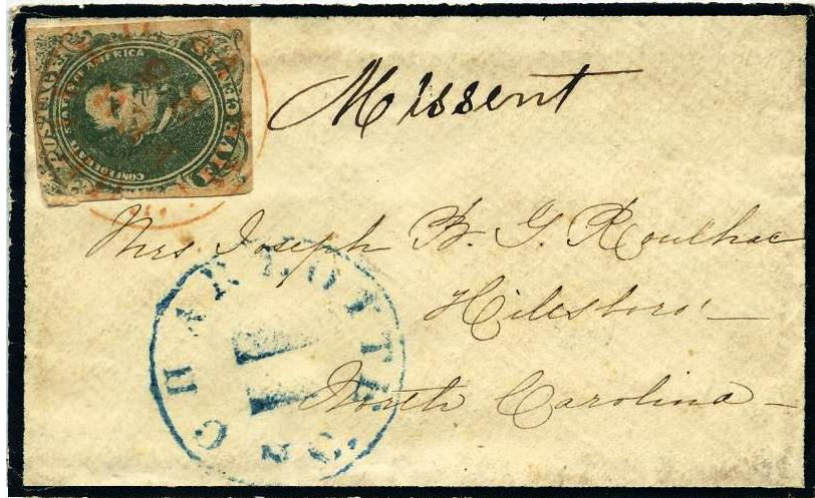 POSTAGE
CONFEDERATE STATES OF AMERICA
Missent
Mrs Joseph B. G. Roulhac
Hillsboro'
North Carolina
CHARLOTTE N.C.